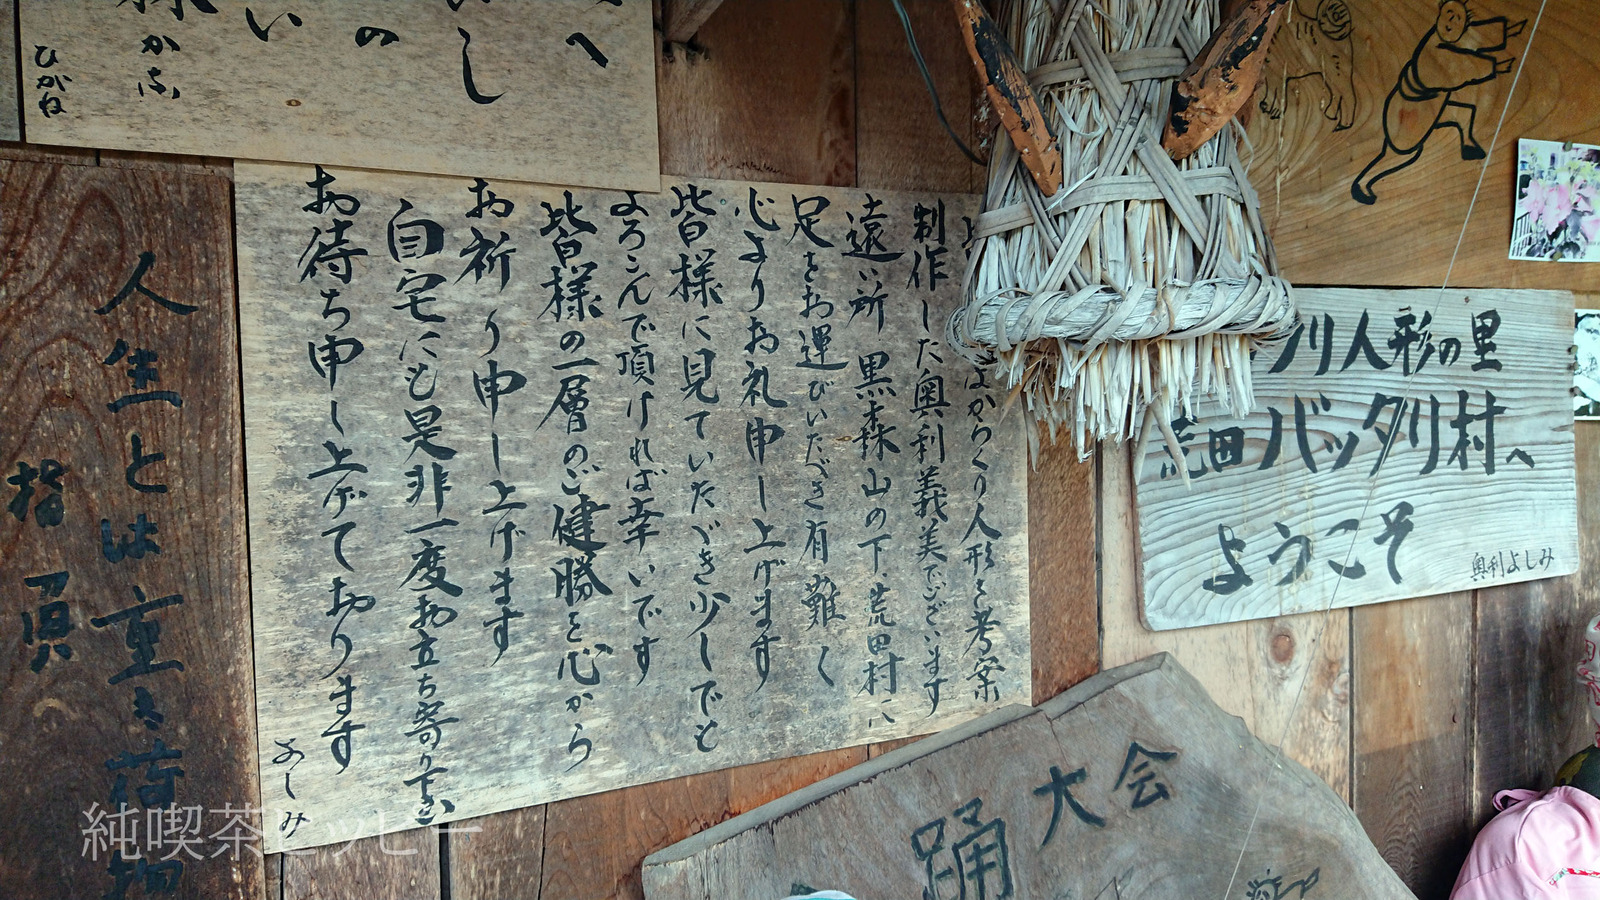 へ
いし
の
い
かふ
ひがね
からくり人形を考案
制作した奥利義美でございます
遠い所黒森山の下、荒田村に
足をお運びいたゞき有難く
心よりお礼申し上げます
皆様に見ていたゞき少しでも
よろこんで頂ければ幸いです
皆様の一層のご健勝を心から
お祈り申し上げます
自宅にも是非一度お立ち寄り下さい
お待ち申し上げております
よしみ
人生とは重き荷物
指
リ人形の里
荒田バッタリ村へ
ようこそ
奥利よしみ
踊大会
純喫茶ヒッピー